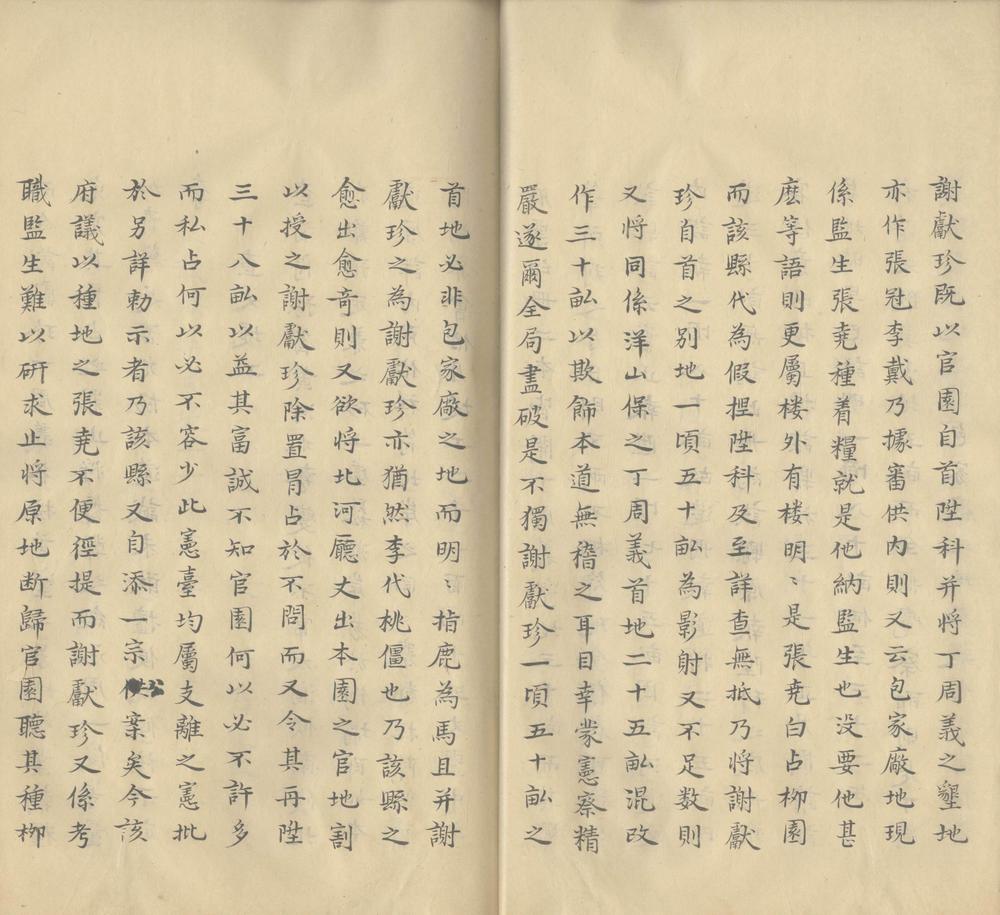 謝獻珍既以官園自首陞科并將丁周義之墾地
亦作張冠李戴乃據審供內則又云包家廠地現
係監生張堯種着糧就是他納監生也没要他甚
麽等語則更屬楼外有楼明〻是張尭白占柳園
而該縣代為假捏陞科及至詳查無抵乃將謝獻
珍自首之别地一頃五十畆為影射又不足数則
又將同係洋山保之丁周義首地二十五畆混改
作三十畆以欺飾本道無稽之耳目幸蒙憲察精
嚴遂爾全局盡破是不獨謝獻珍一頃五十畆之
首地必非包家廠之地而明〻指鹿為馬且并謝
獻珍之為謝獻珍亦猶然李代桃僵也乃該縣之
愈出愈奇則又欲將北河廳丈出本園之官地割
以授之謝獻珍除置冒占於不問而又令其再陞
三十八畆以益其富誠不知官園何以必不許多
而私占何以必不容少此憲臺均屬支離之憲批
於另詳勅示者乃該縣又自添一宗供案矣今該
府議以種地之張堯不便徑提而謝獻珍又係考
職監生難以研求止將原地断歸官園聽其種柳